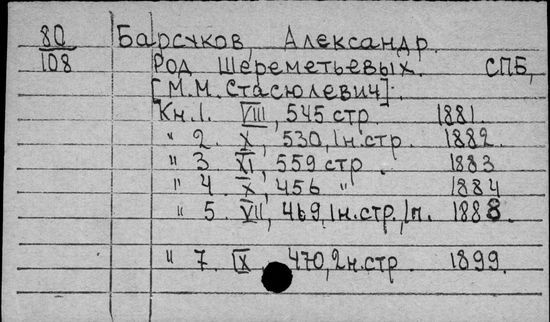 80
108
Барсуков, Александр.
Род Шереметьевых. СПБ,
[М.М. Стасюлевич].
Кн.1. VIII, 545 стр. 1881.
" 2. X, 530, 1н.стр. 1882.
" 3 XI, 559 стр. 1883
" 4 X, 456 " 1884
" 5. VII, 469, 1н.стр., 1л. 1888.
" 7. IX, 470, 2н.стр. 1899.